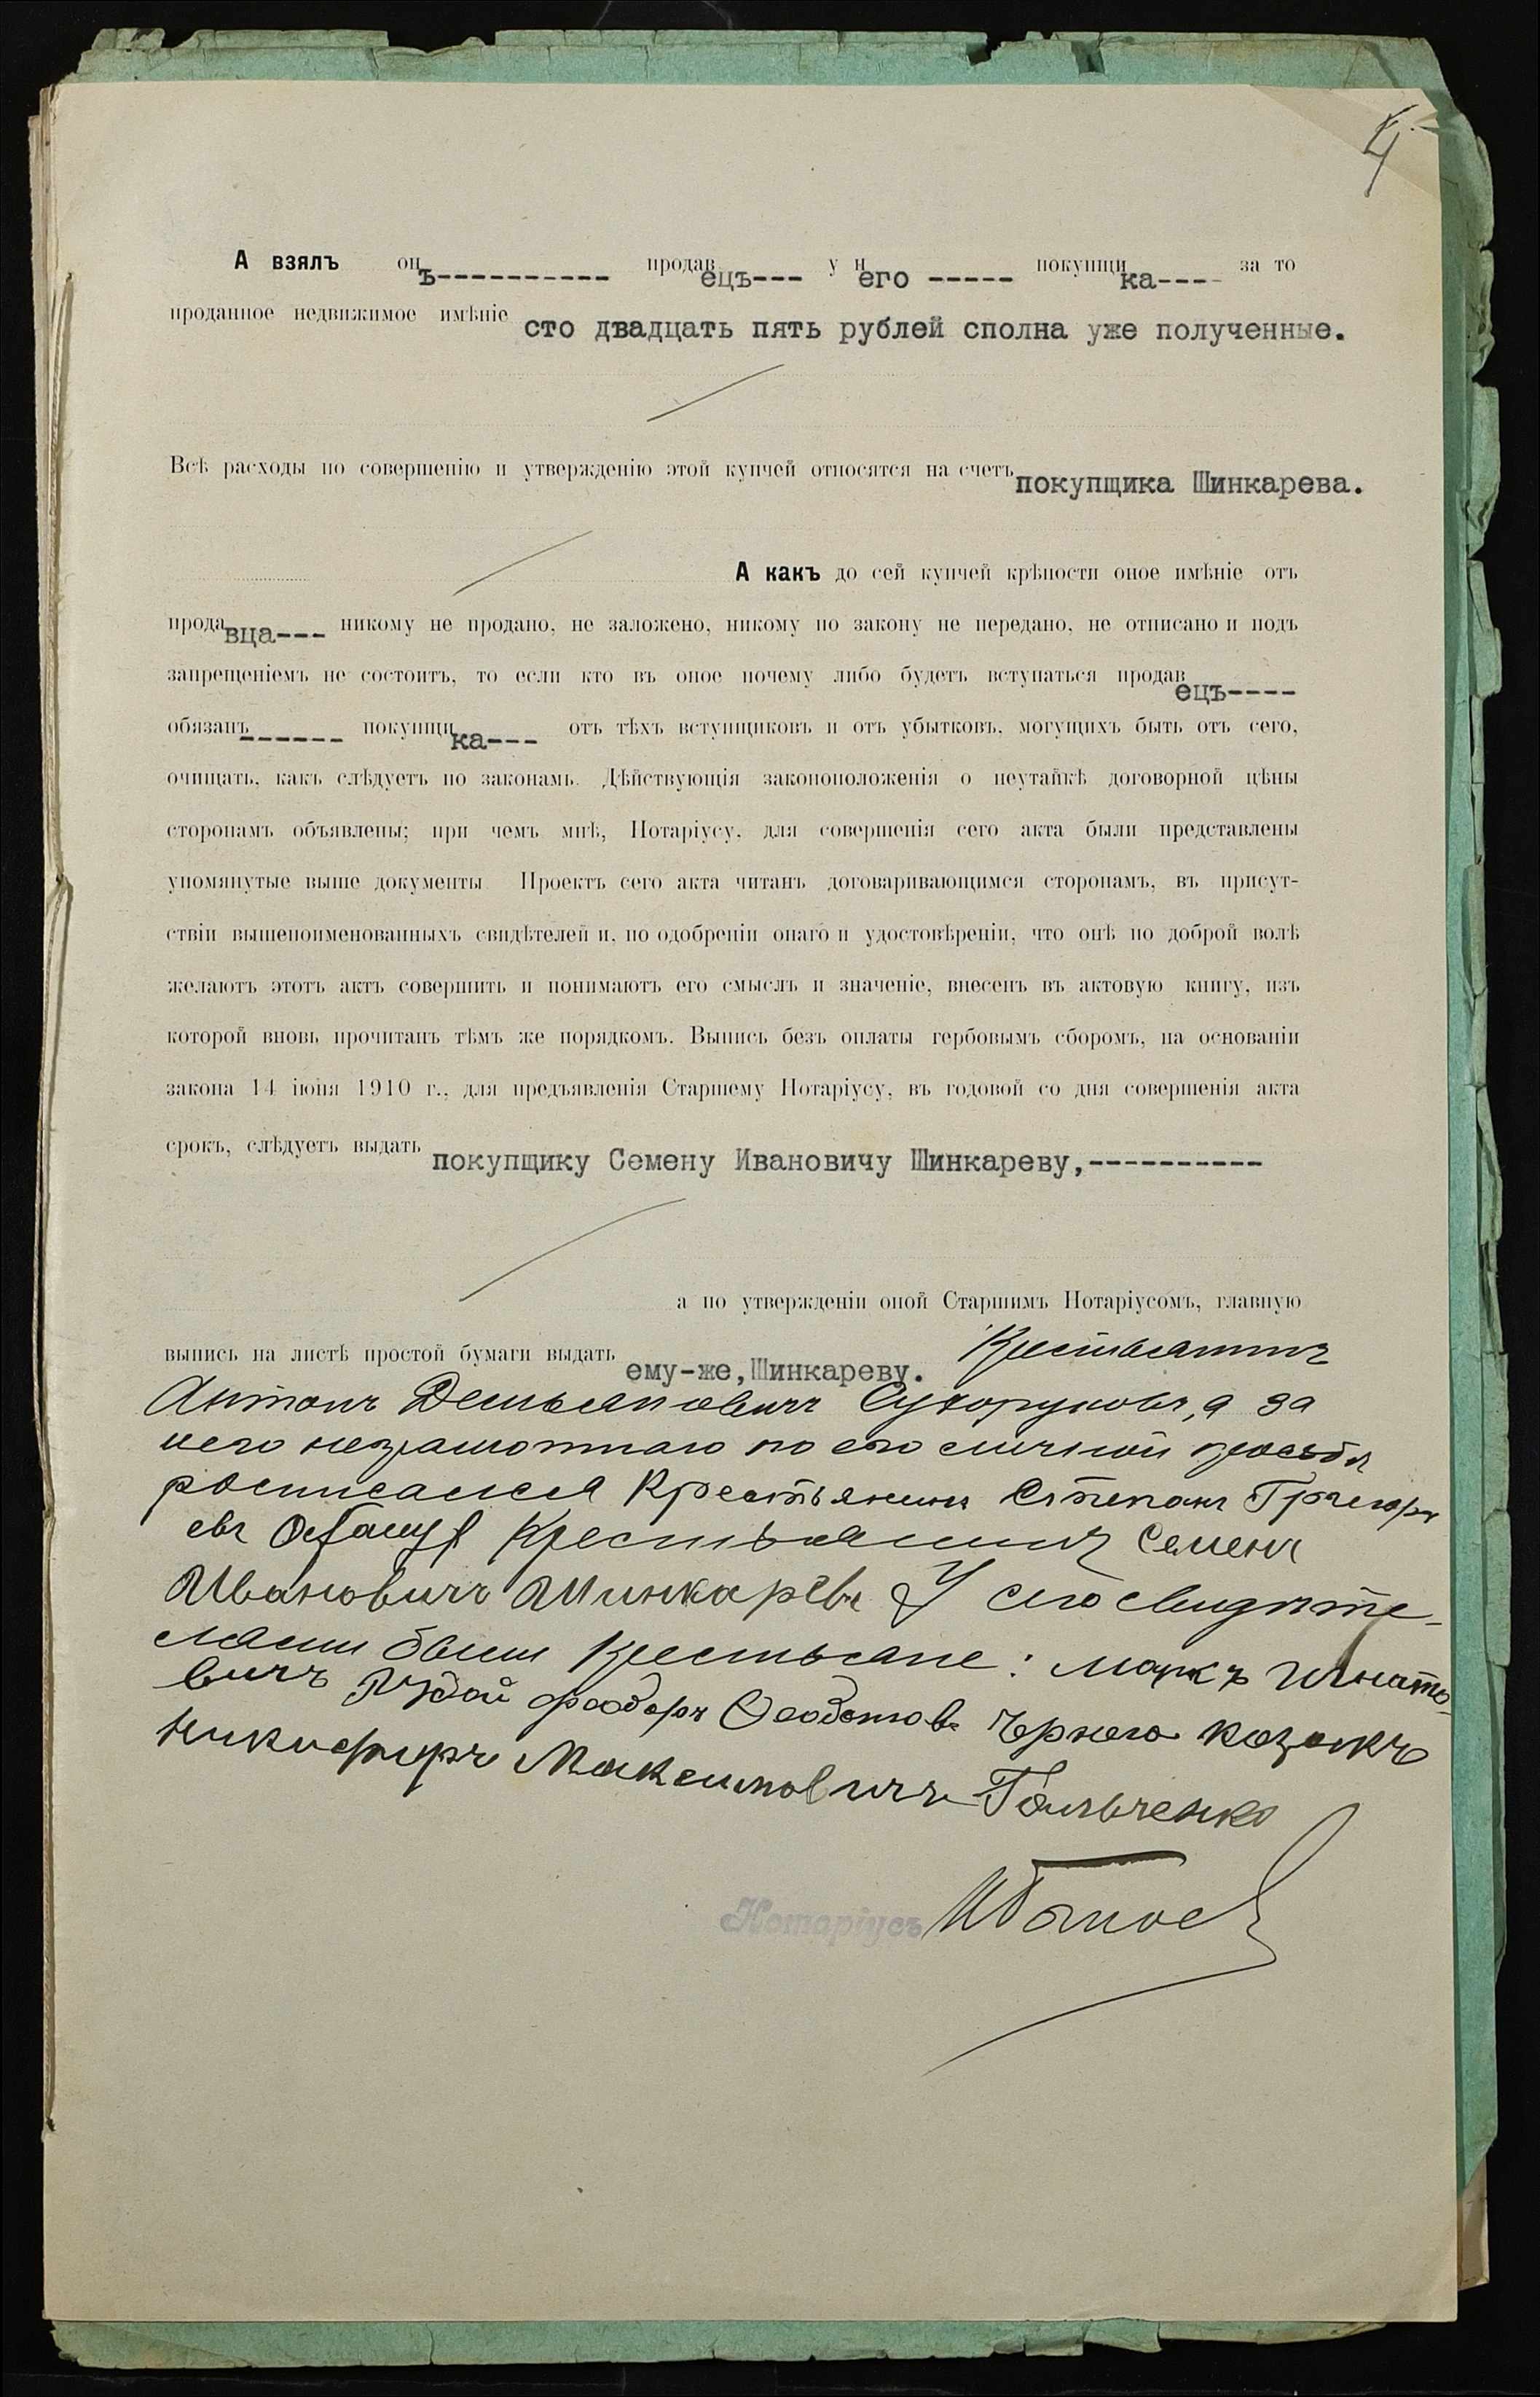 4
А взялъ онъ---------- продавецъ--- у него ----- покупщика---- за то
проданное недвижимое имѣніе сто двадцать пять рублей сполна уже полученные.
Всѣ расходы по совершенію и утвержденію этой купчей относятся на счетъ покупщика Шинкарева.
А какъ до сей купчей крѣпости оное имѣніе отъ
продавца--- никому не продано, не заложено, никому по закону не передано, не отписано и подъ
запрещеніемъ не состоитъ, то если кто въ оное почему либо будетъ вступаться продавецъ----
обязанъ------ покупщика--- отъ тѣхъ вступщиковъ и отъ убытковъ, могущихъ быть отъ сего,
очищать, какъ слѣдуетъ по законамъ. Дѣйствующія законоположенія о неутайкѣ договорной цѣны
сторонамъ объявлены; при чемъ мнѣ, Нотаріусу, для совершенія сего акта были представлены
упомянутые выше документы. Проектъ сего акта читанъ договаривающимся сторонамъ, въ присут-
ствіи вышепоименованныхъ свидѣтелей и, по одобреніи онаго и удостовѣреніи, что онѣ по доброй волѣ
желаютъ этотъ актъ совершить и понимаютъ его смыслъ и значеніе, внесенъ въ актовую книгу, изъ
которой вновь прочитанъ тѣмъ же порядкомъ. Выпись безъ оплаты гербовымъ сборомъ, на основаніи
закона 14 іюня 1910 г., для предъявленія Старшему Нотаріусу, въ годовой со дня совершенія акта
срокъ, слѣдуетъ выдать покупщику Семену Ивановичу Шинкареву,----------
а по утвержденіи оной Старшимъ Нотаріусомъ, главную
выпись на листѣ простой бумаги выдать ему-же,Шинкареву. Крестьянинъ
Антонъ Демьяновичъ Сухоруковъ, а за
него неграмотнаго по его личной просьбѣ
росписался Крестьянинъ Степанъ Григорі
евъ Крестьянинъ Семенъ
Ивановичъ Шинкаревъ У сего свидѣте-
лями были крестьяне: Маркъ Игнато-
вичъ Рудой Феодоръ Феодотовъ козакъ
Никифиръ Максимовичъ
Нотаріусъ